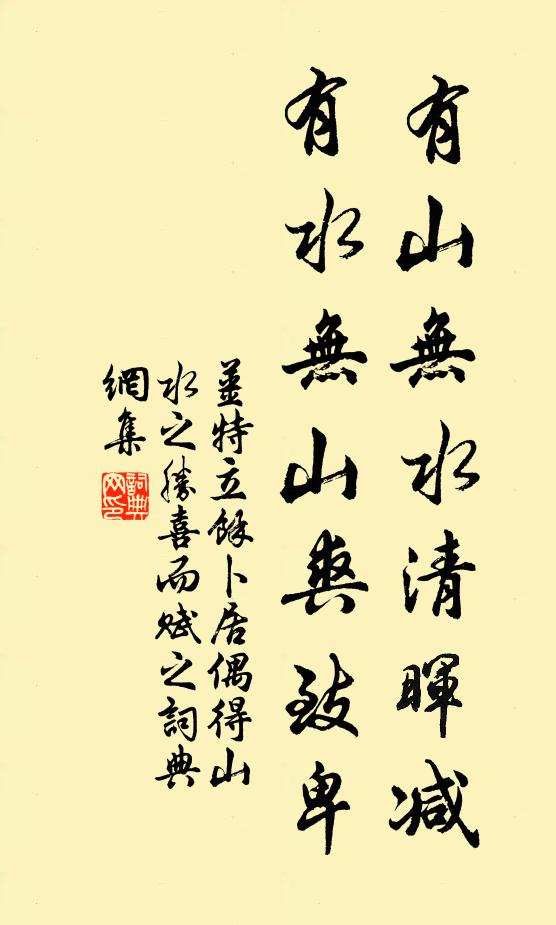 有山無水清暉减
有水無山爽致卑
姜特立餘卜居偶得山
水之勝喜而赋之詞典
網集
詞典網印